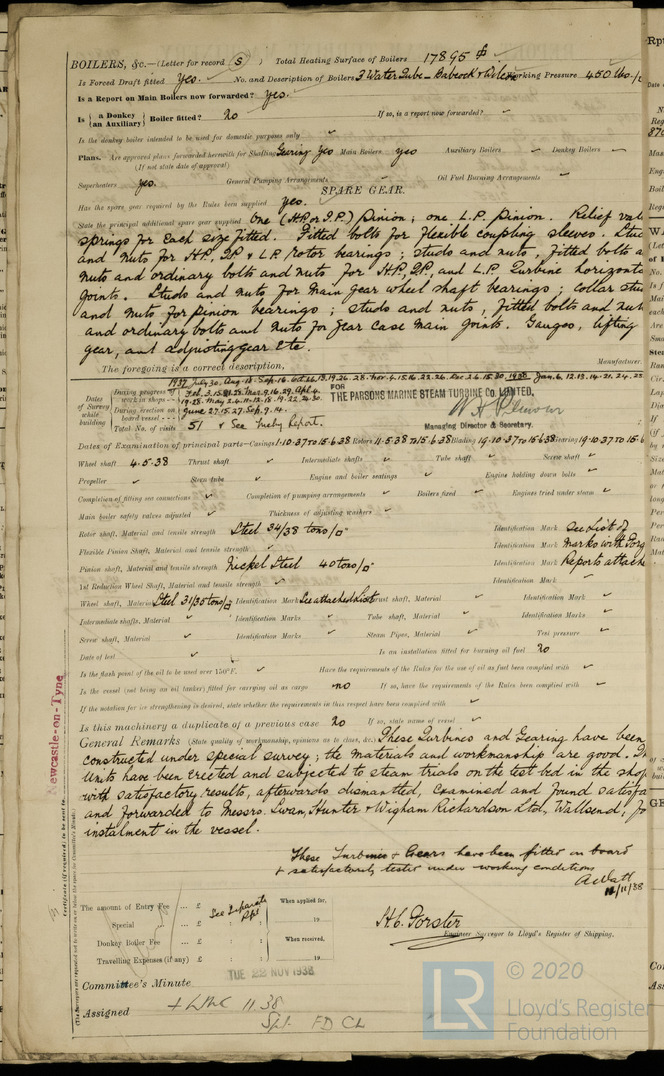 BOILERS, &c.—(Letter for record (S) ) Total Heating Surface of Boilers 17895
Is Forced Draft fitted Yes. No. and Description of Boilers 3 Water Tube - Babcock & Wilcox Working Pressure 450 lbs
Is a Report on Main Boilers now forwarded? Yes.
Is { a Donkey / an Auxiliary } Boiler fitted? No If so, is a report now forwarded?
Is the donkey boiler intended to be used for domestic purposes only
Plans. Are approved plans forwarded herewith for Shafting Gearing Yes Main Boilers yes Auxiliary Boilers Donkey Boilers
(If not state date of approval)
Superheaters yes. General Pumping Arrangements Oil Fuel Burning Arrangements
SPARE GEAR.
Has the spare gear required by the Rules been supplied yes.
State the principal additional spare gear supplied One (H.P. or I.P.) Pinion; one L.P. Pinion. Relief
springs for each size fitted. Fitted bolts for flexible coupling sleeves.
and nuts for H.P., I.P. & L.P. rotor bearings; studs and nuts, fitted bolts
nuts and ordinary bolts and nuts for H.P., I.P., and L.P. Turbine
joints. Studs and nuts for main gear wheel shaft bearings; collar
and nuts for pinion bearings; studs and nuts, fitted bolts and
and ordinary bolts and nuts for gear case main joints. Gauges, lifting
gear, and adjusting gear etc.
The foregoing is a correct description, Manufacturer.
Dates of Survey while building
During progress of work in shops - - 1937 July 30. Aug. 18. Sep. 16.
During erection on board vessel - - June 27. 15. 27. Sep. 9. 14.
Total No. of visits 51 & See Report.
FOR
THE PARSONS MARINE STEAM TURBINE CO. LIMITED,
Managing Director & Secretary.
Dates of Examination of principal parts—Casings 1-10-37 to 15-6-38 Rotors 11-5-38 to 15-6-38 Blading 19-10-37 to 15-6-38 Gearing 19-10-37 to 15-6
Wheel shaft 4-5-38 Thrust shaft Intermediate shafts Tube shaft Screw shaft
Propeller Stern tube Engine and boiler seatings Engine holding down bolts
Completion of fitting sea connections Completion of pumping arrangements Boilers fixed Engines tried under steam
Main boiler safety valves adjusted Thickness of adjusting washers
Rotor shaft, Material and tensile strength Steel 34/38 tons/□" Identification Mark See List of
Flexible Pinion Shaft, Material and tensile strength Identification Mark Marks with
Pinion shaft, Material and tensile strength Nickel Steel 40 tons/□" Identification Mark Reports
1st Reduction Wheel Shaft, Material and tensile strength Identification Mark
Wheel shaft, Material Steel 31/35 tons/□" Identification Mark See attached List Thrust shaft, Material Identification Mark
Intermediate shafts, Material Identification Marks Tube shaft, Material Identification Marks
Screw shaft, Material Identification Marks Steam Pipes, Material Test pressure
Date of test Is an installation fitted for burning oil fuel No
Is the flash point of the oil to be used over 150°F. Have the requirements of the Rules for the use of oil as fuel been complied with
Is the vessel (not being an oil tanker) fitted for carrying oil as cargo no If so, have the requirements of the Rules been complied with
If the notation for ice strengthening is desired, state whether the requirements in this respect have been complied with
Is this machinery a duplicate of a previous case No If so, state name of vessel
General Remarks (State quality of workmanship, opinions as to class, &c.) These Turbines and Gearing have been
constructed under special survey; the materials and workmanship are good.
Units have been erected and subjected to steam trials on the test bed in the shop
with satisfactory results, afterwards dismantled, examined and found
and forwarded to Messrs. Swan, Hunter & Wigham Richardson Ltd, Wallsend,
instalment in the vessel.
These Turbines & Gears have been fitted on board
& satisfactorily tested under working conditions
A Watt
11/11/38
The amount of Entry Fee ... £ : : When applied for,
See Separate Rpt
Special ... £ : : 19
Donkey Boiler Fee ... £ : : When received,
Travelling Expenses (if any) £ : : 19
H.C. Forster
Engineer Surveyor to Lloyd's Register of Shipping.
TUE NOV 1938
Committee's Minute
Assigned + LMC 11.38
Spt. FD CL
Newcastle-on-Tyne
© 2020
Lloyd's Register
Foundation